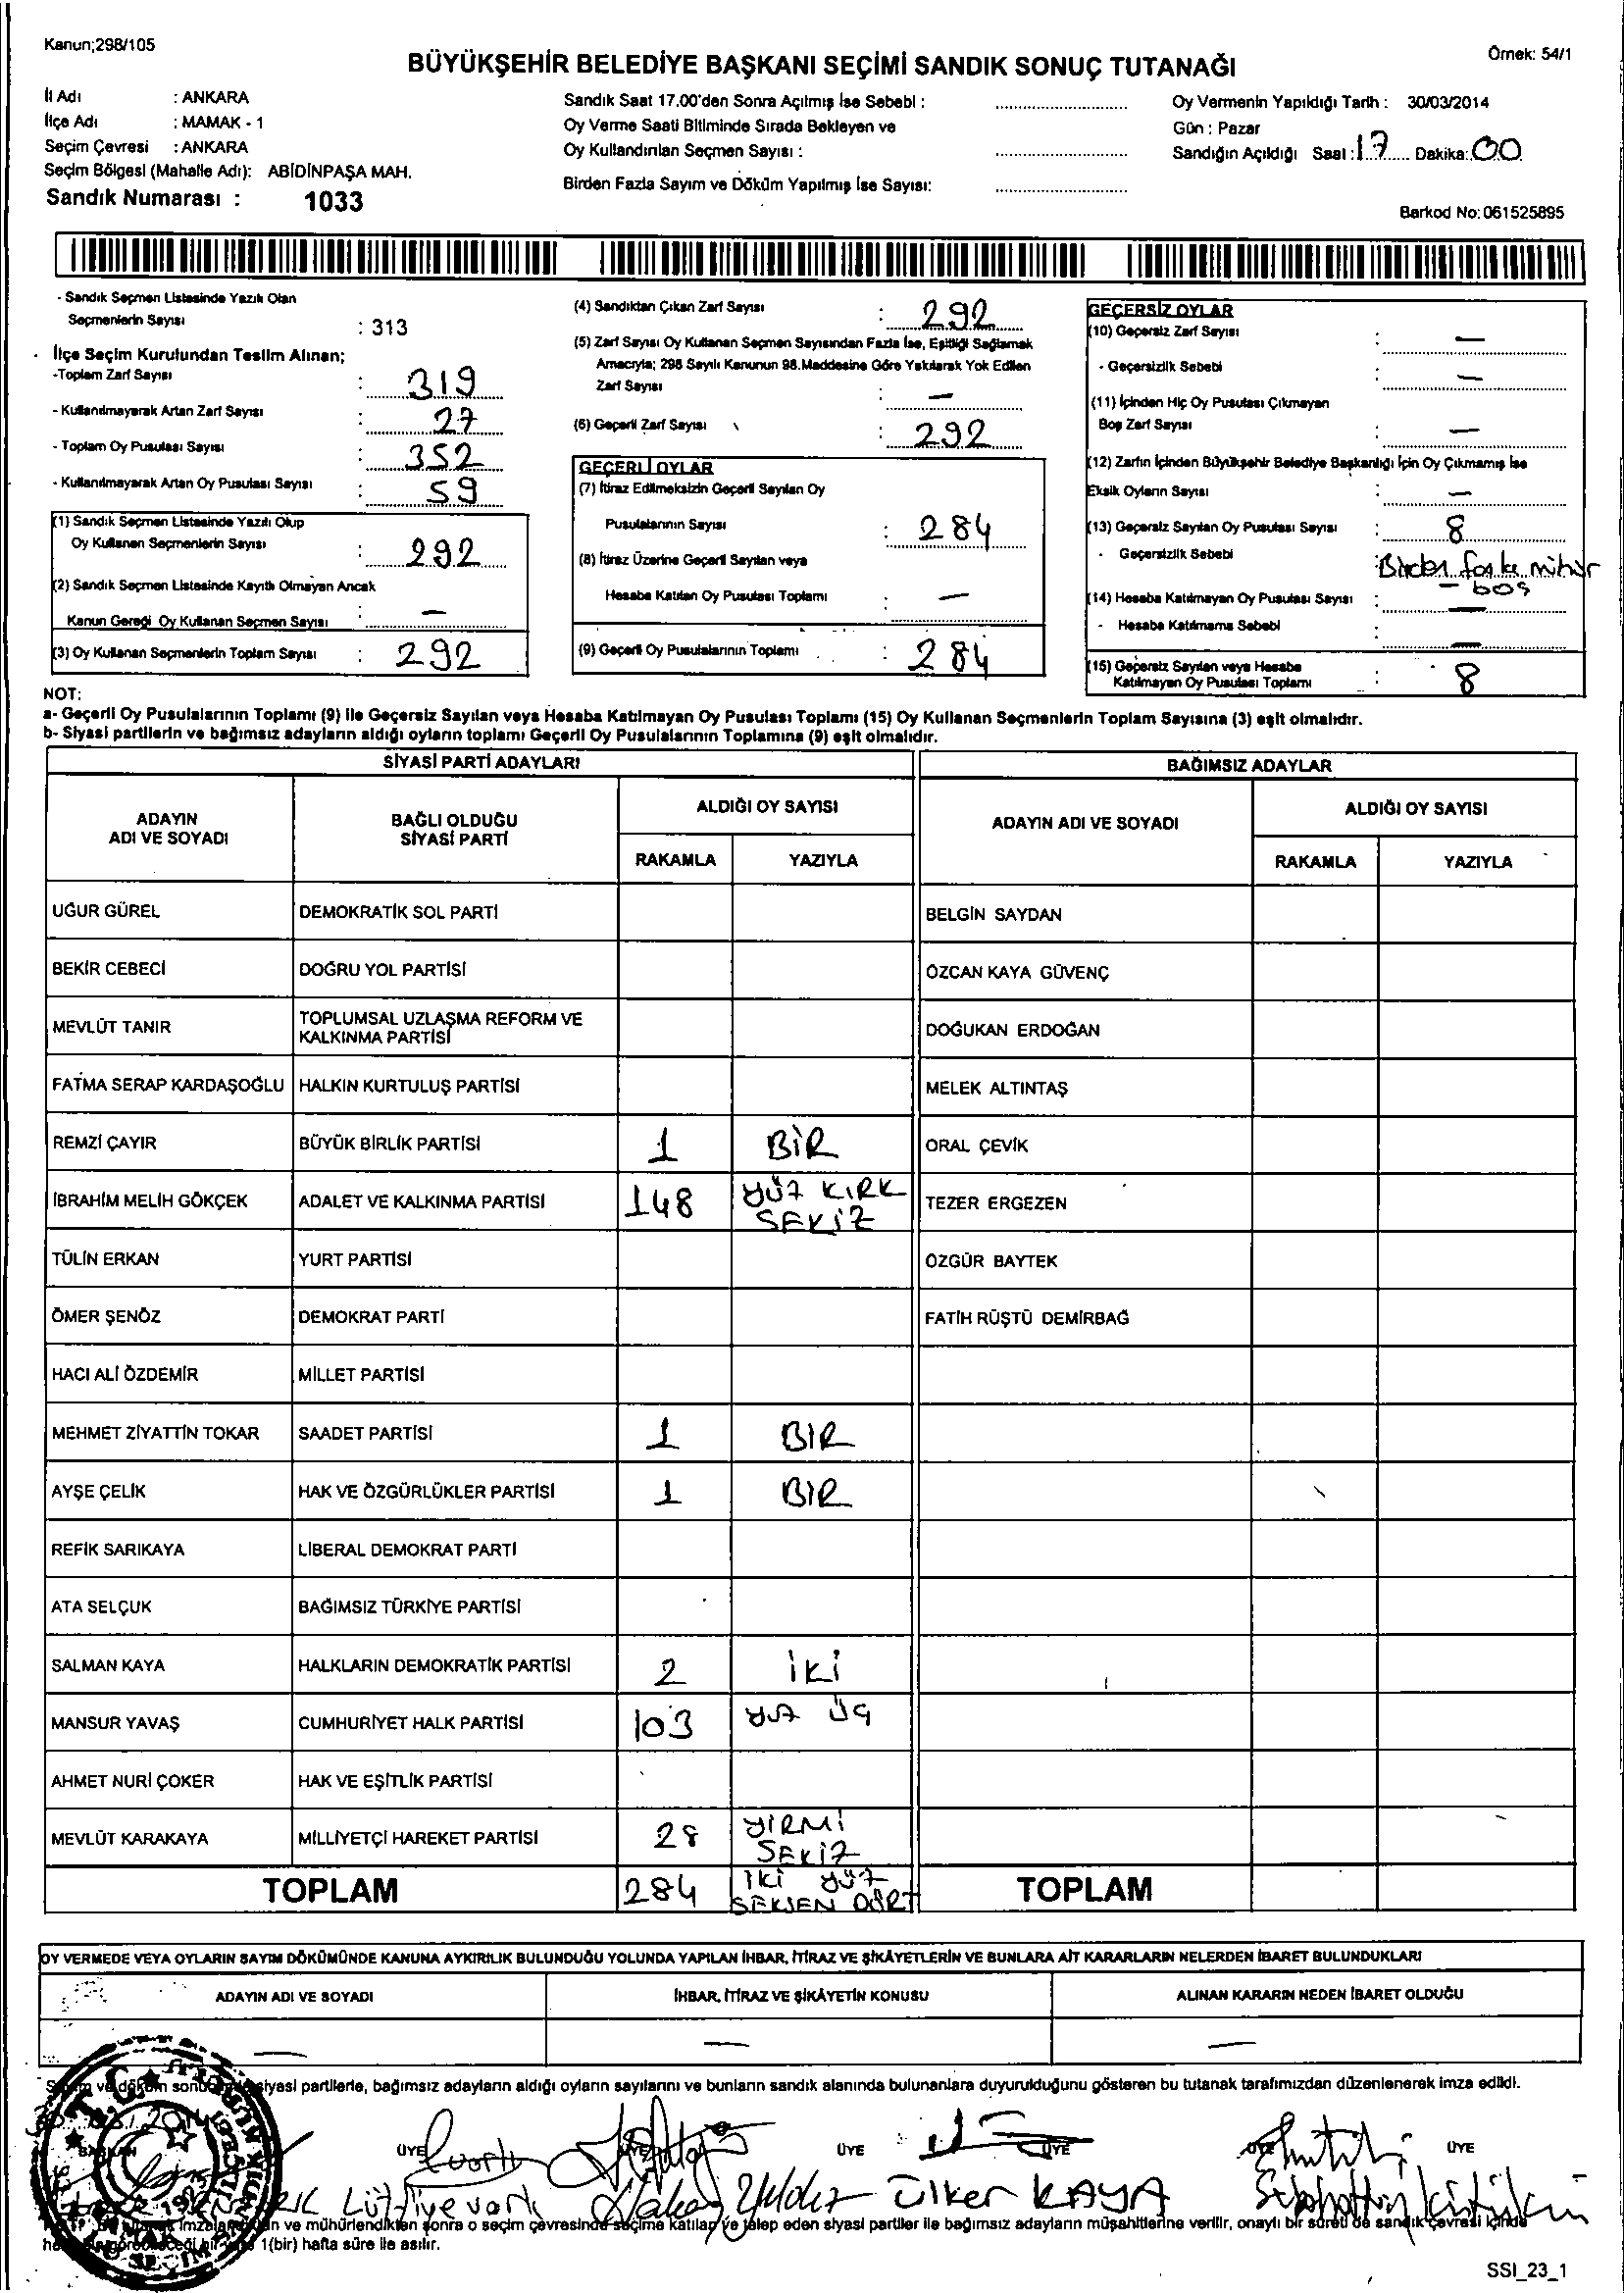 Kanun;298/105
Örnek: 54/1
BÜYÜKŞEHİR BELEDİYE BAŞKANI SEÇİMİ SANDIK SONUÇ TUTANAĞI
İl Adı : ANKARA
İlçe Adı : MAMAK - 1
Seçim Çevresi : ANKARA
Seçim Bölgesi (Mahalle Adı): ABİDİNPAŞA MAH.
Sandık Numarası : 1033
Sandık Saat 17.00'den Sonra Açılmış İse Sebebi :
Oy Verme Saati Bitiminde Sırada Bekleyen ve
Oy Kullandırılan Seçmen Sayısı :
Birden Fazla Sayım ve Döküm Yapılmış İse Sayısı:
Oy Vermenin Yapıldığı Tarih : 30/03/2014
Gün : Pazar
Sandığın Açıldığı Saat : 17 Dakika: 00
Barkod No: 061525895
- Sandık Seçmen Listesinde Yazılı Olan
Seçmenlerin Sayısı : 313
İlçe Seçim Kurulundan Teslim Alınan;
-Toplam Zarf Sayısı : 319
- Kullanılmayarak Artan Zarf Sayısı : 27
- Toplam Oy Pusulası Sayısı : 352
- Kullanılmayarak Artan Oy Pusulası Sayısı : 59
(1) Sandık Seçmen Listesinde Yazılı Olup
Oy Kullanan Seçmenlerin Sayısı : 292
(2) Sandık Seçmen Listesinde Kayıtlı Olmayan Ancak
Kanun Gereği Oy Kullanan Seçmen Sayısı : —
(3) Oy Kullanan Seçmenlerin Toplam Sayısı : 292
(4) Sandıktan Çıkan Zarf Sayısı : 292
(5) Zarf Sayısı Oy Kullanan Seçmen Sayısından Fazla İse, Eşitliği Sağlamak
Amacıyla; 298 Sayılı Kanunun 98.Maddesine Göre Yakılarak Yok Edilen
Zarf Sayısı : —
(6) Geçerli Zarf Sayısı : 292
GEÇERLİ OYLAR
(7) İtiraz Edilmeksizin Geçerli Sayılan Oy
Pusulalarının Sayısı : 284
(8) İtiraz Üzerine Geçerli Sayılan veya
Hesaba Katılan Oy Pusulası Toplamı : —
(9) Geçerli Oy Pusulalarının Toplamı : 284
GEÇERSİZ OYLAR
(10) Geçersiz Zarf Sayısı : —
- Geçersizlik Sebebi : —
(11) İçinden Hiç Oy Pusulası Çıkmayan
Boş Zarf Sayısı : —
(12) Zarfın İçinden Büyükşehir Belediye Başkanlığı İçin Oy Çıkmamış İse
Eksik Oyların Sayısı : —
(13) Geçersiz Sayılan Oy Pusulası Sayısı : 8
- Geçersizlik Sebebi : Birden fazla mühür
— boş
(14) Hesaba Katılmayan Oy Pusulası Sayısı : —
- Hesaba Katılmama Sebebi : —
(15) Geçersiz Sayılan veya Hesaba
Katılmayan Oy Pusulası Toplamı : 8
NOT:
a- Geçerli Oy Pusulalarının Toplamı (9) ile Geçersiz Sayılan veya Hesaba Katılmayan Oy Pusulası Toplamı (15) Oy Kullanan Seçmenlerin Toplam Sayısına (3) eşit olmalıdır.
b- Siyasi partilerin ve bağımsız adayların aldığı oyların toplamı Geçerli Oy Pusulalarının Toplamına (9) eşit olmalıdır.
SİYASİ PARTİ ADAYLARI
ADAYIN ADI VE SOYADI
BAĞLI OLDUĞU SİYASİ PARTİ
ALDIĞI OY SAYISI
RAKAMLA YAZIYLA
UĞUR GÜREL DEMOKRATİK SOL PARTİ
BEKİR CEBECİ DOĞRU YOL PARTİSİ
MEVLÜT TANIR TOPLUMSAL UZLAŞMA REFORM VE KALKINMA PARTİSİ
FATMA SERAP KARDAŞOĞLU HALKIN KURTULUŞ PARTİSİ
REMZİ ÇAYIR BÜYÜK BİRLİK PARTİSİ 1 BİR
İBRAHİM MELİH GÖKÇEK ADALET VE KALKINMA PARTİSİ 148 YÜZ KIRK SEKİZ
TÜLİN ERKAN YURT PARTİSİ
ÖMER ŞENÖZ DEMOKRAT PARTİ
HACI ALİ ÖZDEMİR MİLLET PARTİSİ
MEHMET ZİYATTİN TOKAR SAADET PARTİSİ 1 BIR
AYŞE ÇELİK HAK VE ÖZGÜRLÜKLER PARTİSİ 1 BIR
REFİK SARIKAYA LİBERAL DEMOKRAT PARTİ
ATA SELÇUK BAĞIMSIZ TÜRKİYE PARTİSİ
SALMAN KAYA HALKLARIN DEMOKRATİK PARTİSİ 2 İKİ
MANSUR YAVAŞ CUMHURİYET HALK PARTİSİ 103 YÜZ ÜÇ
AHMET NURİ ÇOKER HAK VE EŞİTLİK PARTİSİ
MEVLÜT KARAKAYA MİLLİYETÇİ HAREKET PARTİSİ 28 YİRMİ SEKİZ
TOPLAM 284 İKİ YÜZ SEKSEN DÖRT
BAĞIMSIZ ADAYLAR
ADAYIN ADI VE SOYADI
ALDIĞI OY SAYISI
RAKAMLA YAZIYLA
BELGİN SAYDAN
ÖZCAN KAYA GÜVENÇ
DOĞUKAN ERDOĞAN
MELEK ALTINTAŞ
ORAL ÇEVİK
TEZER ERGEZEN
ÖZGÜR BAYTEK
FATİH RÜŞTÜ DEMİRBAĞ
TOPLAM
OY VERMEDE VEYA OYLARIN SAYIM DÖKÜMÜNDE KANUNA AYKIRILIK BULUNDUĞU YOLUNDA YAPILAN İHBAR, İTİRAZ VE ŞİKÂYETLERİN VE BUNLARA AİT KARARLARIN NELERDEN İBARET BULUNDUKLARI
ADAYIN ADI VE SOYADI
İHBAR, İTİRAZ VE ŞİKÂYETİN KONUSU
ALINAN KARARIN NEDEN İBARET OLDUĞU
— — —
siyasi partilerle, bağımsız adayların aldığı oyların sayılarını ve bunların sandık alanında bulunanlara duyurulduğunu gösteren bu tutanak tarafımızdan düzenlenerek imza edildi.
BAŞKAN ÜYE ÜYE ÜYE ÜYE ÜYE ÜYE
Lütfiye Varlı Hakan Yıldız Ülker KAYA
ve mühürlendikten sonra o seçim çevresinde seçime katılan ve talep eden siyasi partiler ile bağımsız adayların müşahitlerine verilir, onaylı bir sureti de sandık çevresi içinde
1(bir) hafta süre ile asılır.
SSI_23_1